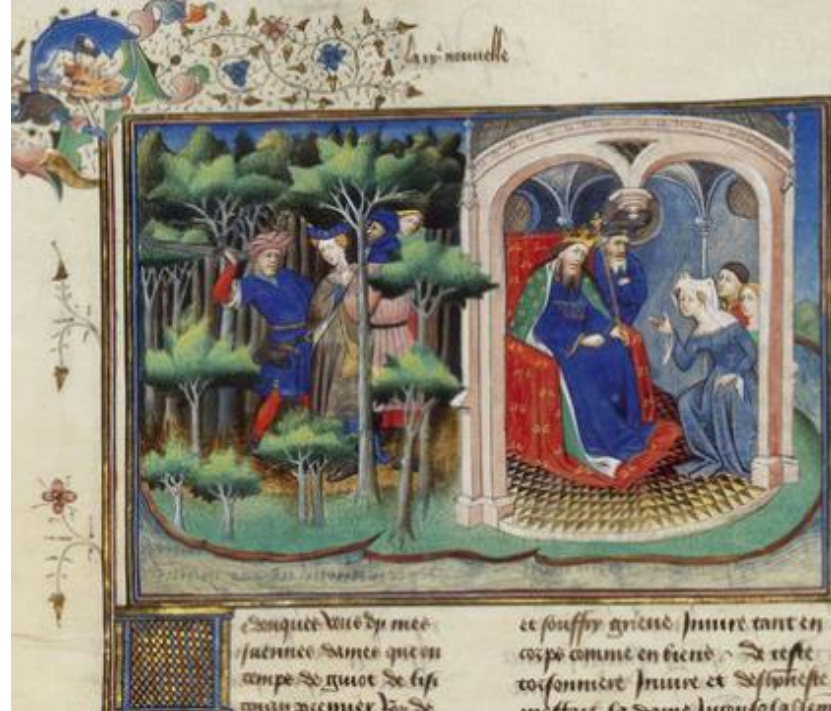 La ixe nouvelle
e donques vous dy mes
jaennes dames que ou
temps de guiot de lisi
premier Roy de
et souffry grieue Iniure tant en
corps comme en biens De ceste
torsonniere Iniure et deshoneste
la dame